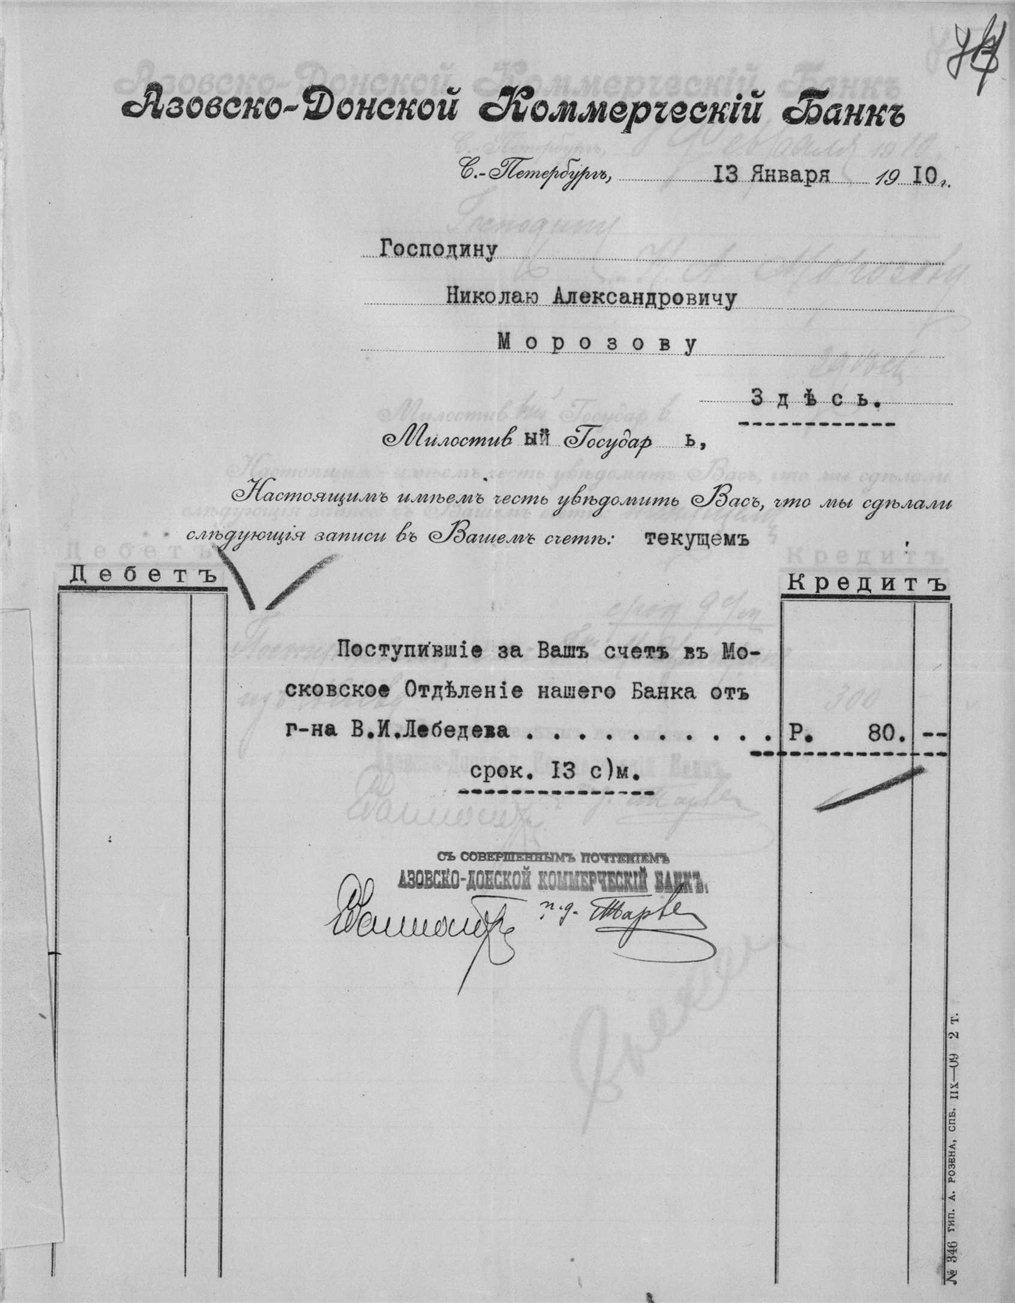 Азовско-Донской Коммерческій Банкъ
С.-Петербургъ, 13 Января 1910 г.
Господину
Николаю Александровичу
Морозову
Здѣсь.
Милостивый Государь,
Настоящимъ имѣемъ честь увѣдомить Васъ, что мы сдѣлали
слѣдующія записи въ Вашемъ счетѣ: текущемъ
Дебетъ Кредитъ
Поступившіе за Вашъ счетъ въ Мо-
сковское Отдѣленіе нашего Банка отъ
г-на В.И.Лебедева . . . . . . . . . . Р. 80. --
срок. 13 с)м.
СЪ СОВЕРШЕННЫМЪ ПОЧТЕНІЕМЪ
АЗОВСКО-ДОНСКОЙ КОММЕРЧЕСКІЙ БАНКЪ.
п.д.
№ 346 тип. А. РОЗЕНА, СПБ. IIX—09 2 т.